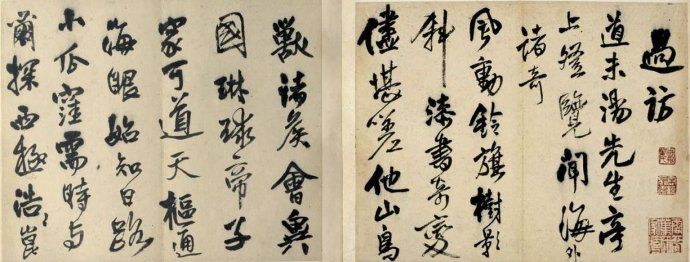 過訪
道未湯先生亭
上登覽聞海外
諸奇
風動鈴旗樹影
斜漆書奇變
儘堪嗟他山鳥
獸諸侯會異
國琳球帝子
家可道天樞通
海眼始知日路
小瓜窪需時与
爾探西極浩〻崑